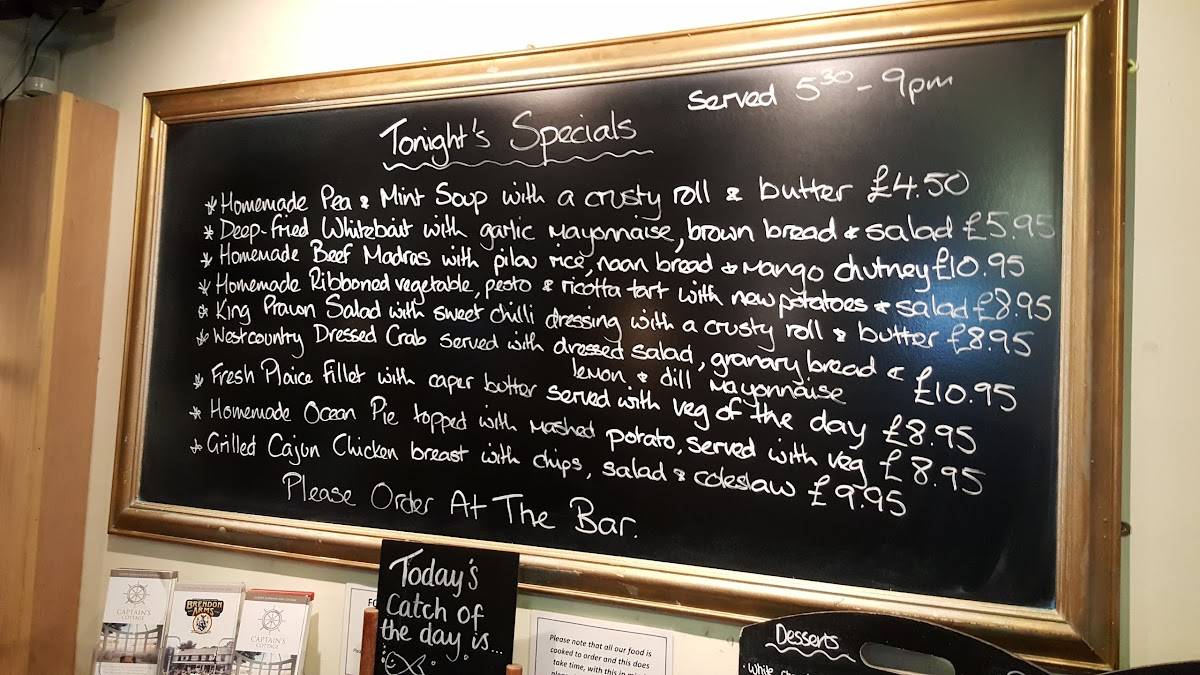 Served 5³⁰ - 9pm
Tonight's Specials
* Homemade Pea & Mint Soup with a crusty roll & butter £4.50
* Deep-fried Whitebait with garlic Mayonnaise, brown bread & salad £5.95
* Homemade Beef Madras with pilau rice, naan bread & Mango chutney £10.95
* Homemade Ribboned vegetable, pesto & ricotta tart with new potatoes & salad £8.95
* King Prawn Salad with sweet chilli dressing with a crusty roll & butter £8.95
* Westcountry Dressed Crab served with dressed salad, granary bread &
lemon & dill Mayonnaise £10.95
* Fresh Plaice Fillet with caper butter served with veg of the day £8.95
* Homemade Ocean Pie topped with Mashed potato, served with veg £8.95
* Grilled Cajun Chicken breast with chips, salad & coleslaw £9.95
Please Order At The Bar.
Today's
Catch of
the day is...
CAPTAIN'S
COTTAGE
BRENDON
ARMS
CAPTAIN'S
COTTAGE
Please note that all our food is
cooked to order and this does
take time, with this in
Desserts